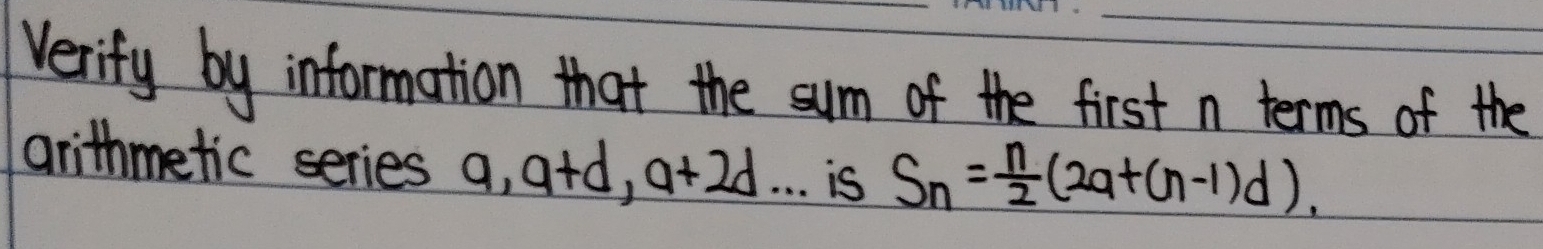 Verify by information that the sum of the first n terms of the
arithmetic series a, a+d, a+2d... is Sn = n/2 (2a+(n-1)d).